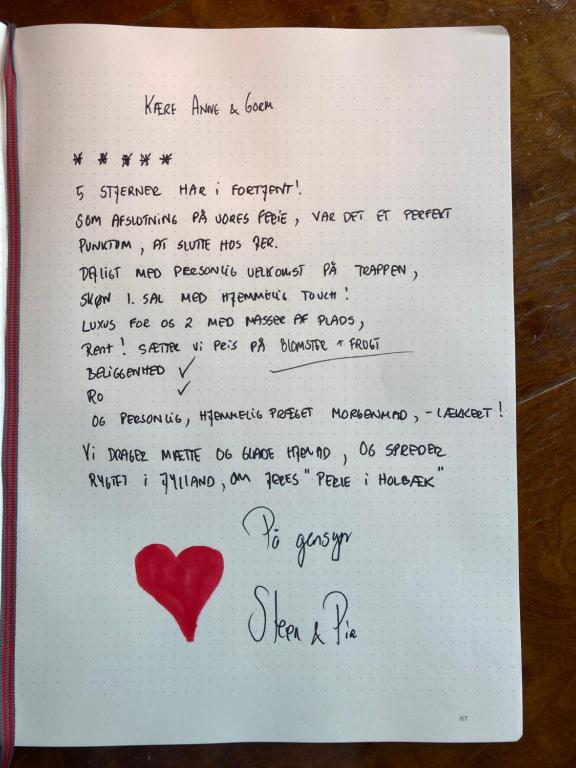 KÆRE ANNE & GORM
* * * * *
5 STJERNER HAR I FORTJENT!
SOM AFSLUTNING PÅ VORES FERIE, VAR DET ET PERFEKT
PUNKTUM, AT SLUTTE HOS JER.
DEJLIGT MED PERSONLIG VELKOMST PÅ TRAPPEN,
SKØN 1. SAL MED HJEMMELIG TOUCH!
LUXUS FOR OS 2 MED MASSER AF PLADS,
Rent! SÆTTER Vi PRiS PÅ BLOMSTER + FRUGT
BELIGGENHED ✓
RO ✓
OG PERSONLIG, HJEMMELIG PRÆGET MORGENMAD, - LÆKKERT!
Vi DRAGER MÆTTE OG GLADE HJEMAD, OG SPREDER
RYGTET i JYLLAND, OM JERES "PERLE i HOLBÆK"
På gensyn
Steen & Pia
67